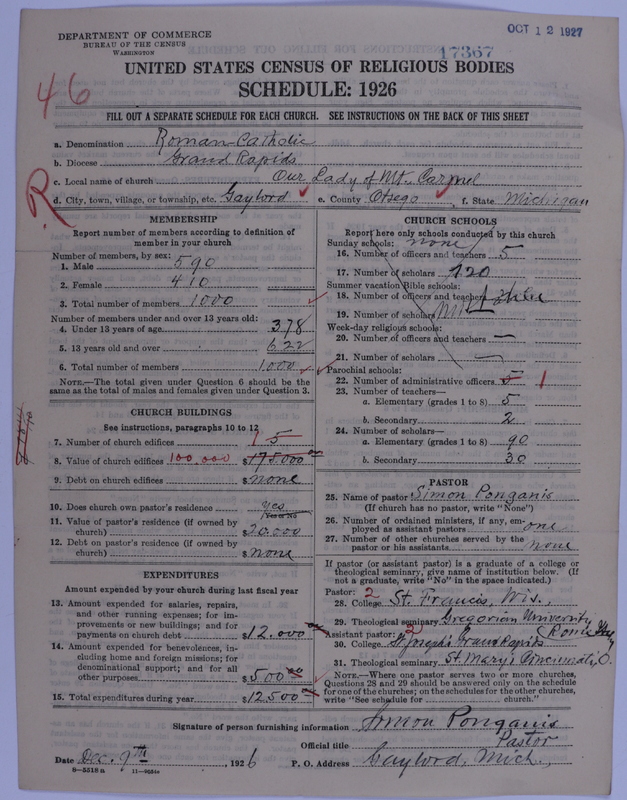 OCT 12 1927
DEPARTMENT OF COMMERCE
BUREAU OF THE CENSUS
WASHINGTON
17367
UNITED STATES CENSUS OF RELIGIOUS BODIES
SCHEDULE: 1926
46
FILL OUT A SEPARATE SCHEDULE FOR EACH CHURCH. SEE INSTRUCTIONS ON THE BACK OF THIS SHEET
a. Denomination Roman Catholic
b. Diocese Grand Rapids
c. Local name of church Our Lady of Mt. Carmel
d. City, town, village, or township, etc. Gaylord e. County Otsego f. State Michigan
R
MEMBERSHIP
Report number of members according to definition of
member in your church
Number of members, by sex:
1. Male 590
2. Female 410
3. Total number of members 1000
Number of members under and over 13 years old:
4. Under 13 years of age 378
5. 13 years old and over 622
6. Total number of members 1000
NOTE.—The total given under Question 6 should be
the same as the total of males and females given under Question 3.
CHURCH BUILDINGS
See instructions, paragraphs 10 to 12
7. Number of church edifices 1 5
8. Value of church edifices 100.000 $175.000 00
9. Debt on church edifices $ none
10. Does church own pastor's residence? yes
(Yes or No)
11. Value of pastor's residence (if owned by
church) $20.000
12. Debt on pastor's residence (if owned by
church) $ none
EXPENDITURES
Amount expended by your church during last fiscal year
13. Amount expended for salaries, repairs,
and other running expenses; for im-
provements or new buildings; and for
payments on church debt $12.000 00
14. Amount expended for benevolences, in-
cluding home and foreign missions; for
denominational support; and for all
other purposes $500 00
15. Total expenditures during year $12500 00
CHURCH SCHOOLS
Report here only schools conducted by this church
Sunday schools: none
16. Number of officers and teachers 5
17. Number of scholars 120
Summer vacation Bible schools:
18. Number of officers and teachers
19. Number of scholars
Week-day religious schools:
20. Number of officers and teachers —
21. Number of scholars —
Parochial schools:
22. Number of administrative officers 5 1
23. Number of teachers—
a. Elementary (grades 1 to 8) 5
b. Secondary 2
24. Number of scholars—
a. Elementary (grades 1 to 8) 90
b. Secondary 30
PASTOR
25. Name of pastor Simon Ponganis
(If church has no pastor, write "None")
26. Number of ordained ministers, if any, em-
ployed as assistant pastors one
27. Number of other churches served by the
pastor or his assistants none
If pastor (or assistant pastor) is a graduate of a college or
theological seminary, give name of institution below. (If
not a graduate, write "No" in the space indicated.)
Pastor: 2
28. College St. Francis, Wis.,
29. Theological seminary Gregorian University
Assistant pastor: 2 Rome Italy
30. College St Josephs Grand Rapids
31. Theological seminary St. Mary's Cincinnati, O.
NOTE.—Where one pastor serves two or more churches,
Questions 28 and 29 should be answered only on the schedule
for one of the churches; on the schedules for the other churches,
write "See schedule for church."
Signature of person furnishing information Simon Ponganis
Official title Pastor
Date Dec. 9th, 1926 P. O. Address Gaylord, Mich.,
8—5518 a